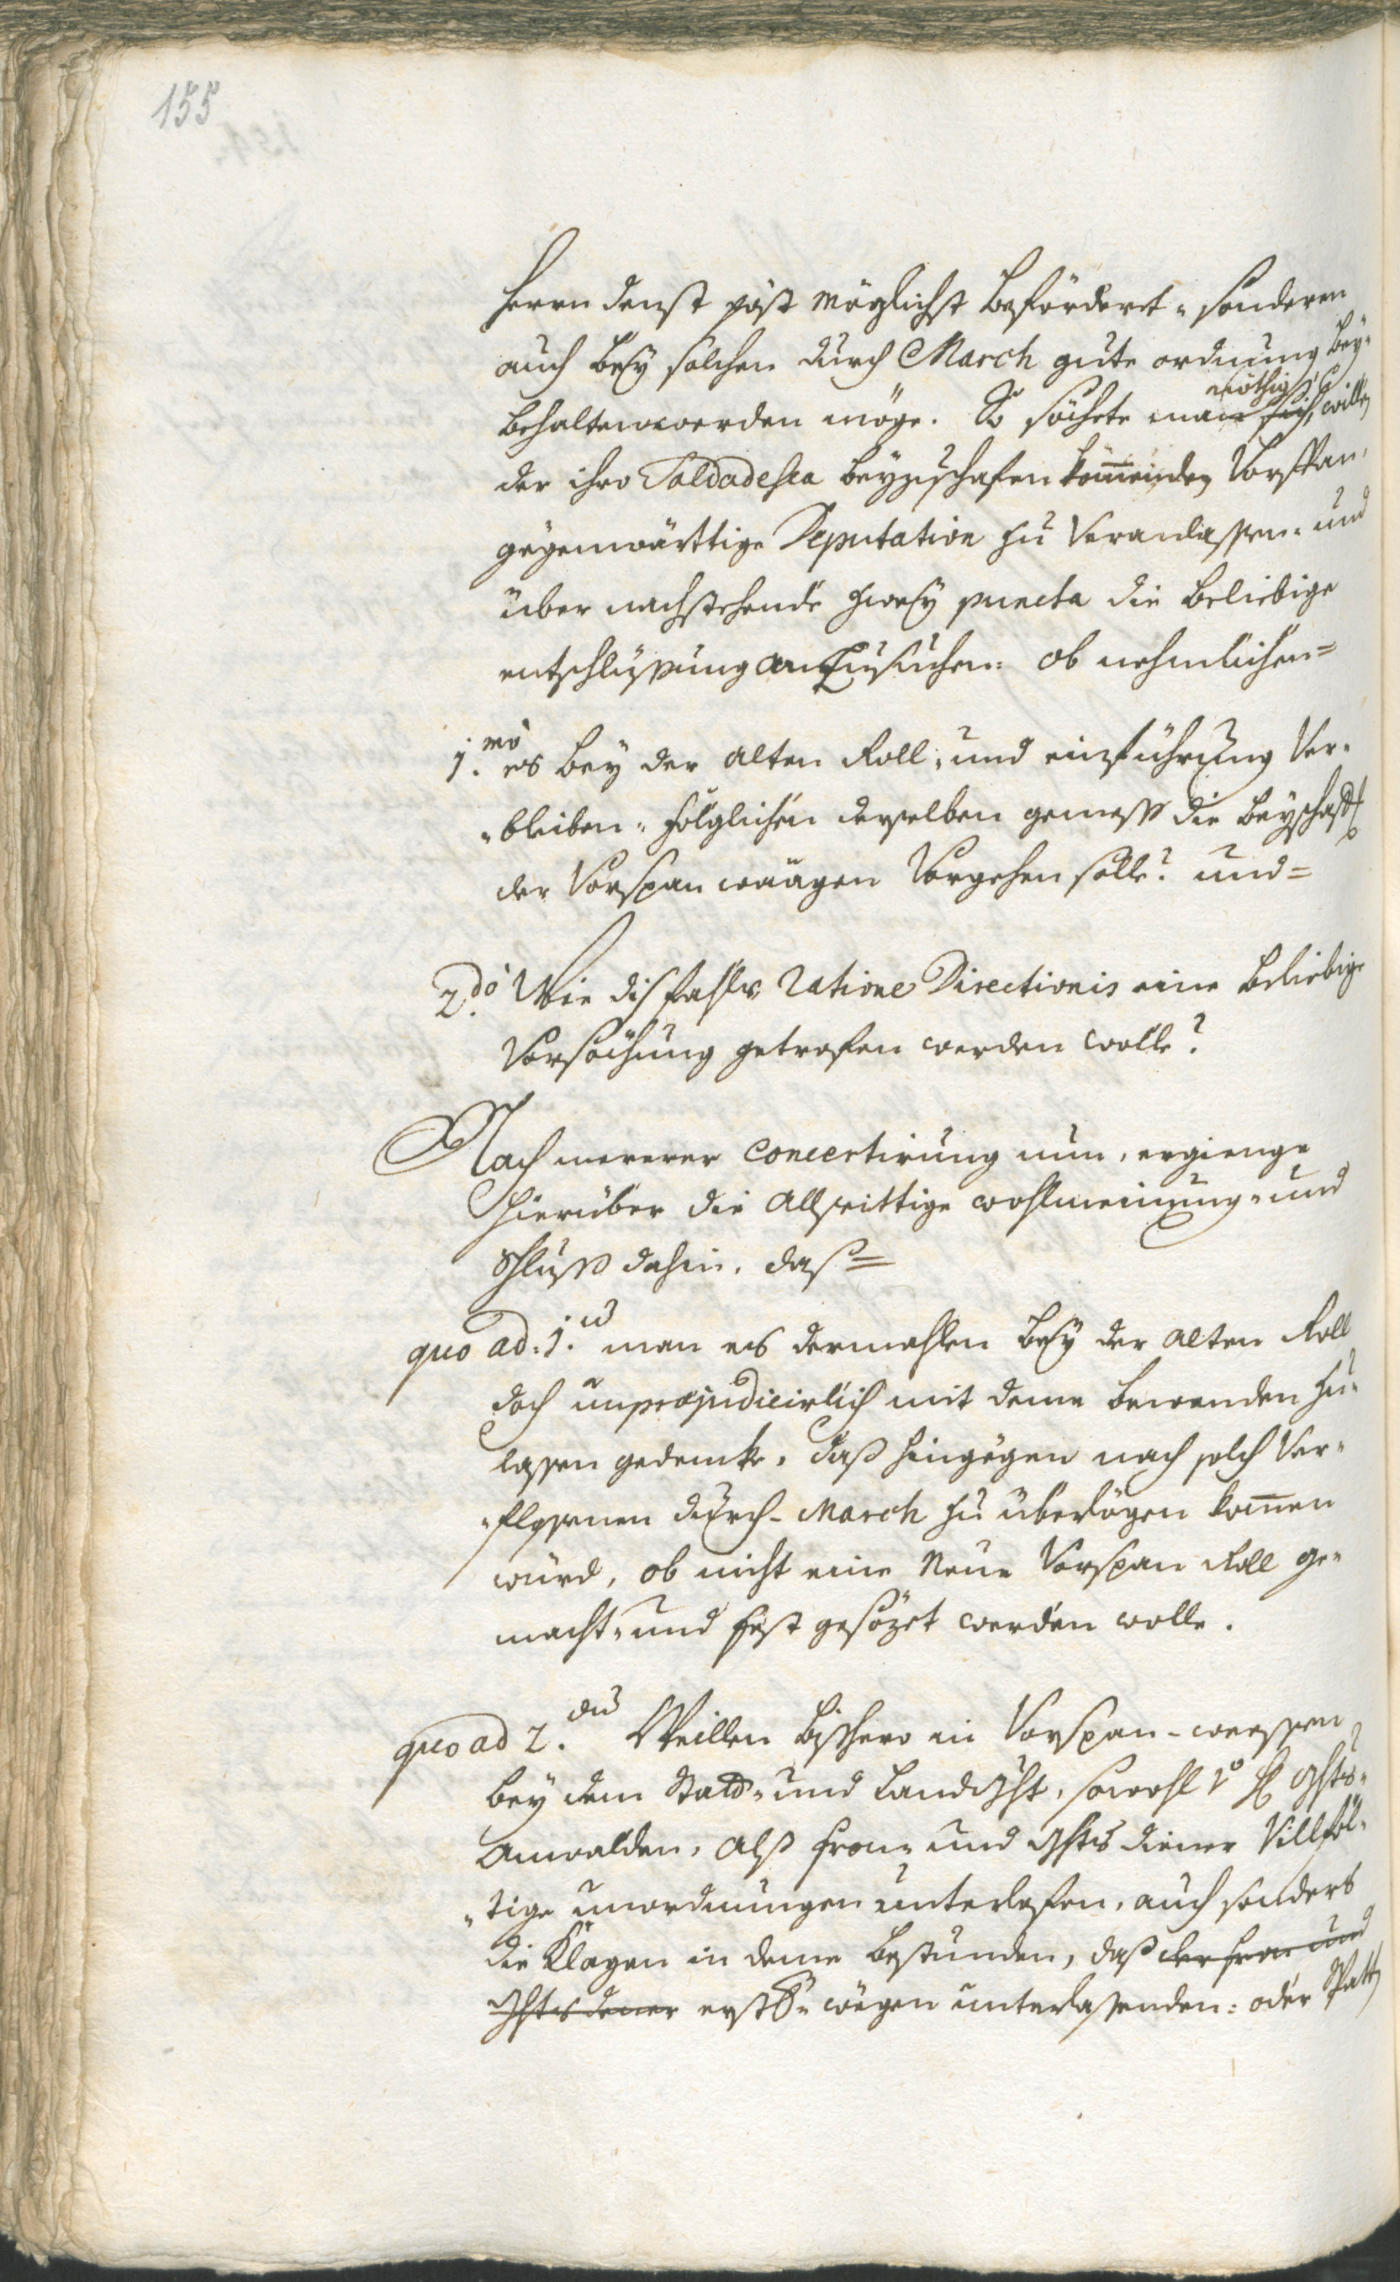 155
herrn denst pöst möglichst befördert- sonderen
auch bey solchen durch March gute ordnung bey-
behalten werden möge. So söchete man ~~sich~~ nöthig, willen
der ihro Soldadesca beyzuschafen komenden Vorspan,
gegenwärttige Deputation zu Veranlassen- und
über nachstehende zwey puncta die beliebige
entschlüssung anzusuchen: ob nehmlichen=
1.mo es bey der alten Roll, und einführung Ver-
-bleiben- folglichen derselben gemess die beyschaff
der Vorspan wäägen Vorgehen solle? und=
2.do Wie disfahls ratione Directionis eine beliebige
Vorsöchung getrofen werden wolle?
Nach mererer concertirung nun, ergienge
hierüber die allseittige wohlmeinung- und
Schluss dahin, dass=
quo ad: 1.um man es dermahlen bey der alten Roll
doch unpræjudicirlich mit deme bewenden zu-
lassen gedencke, dass hingegen nach solch Ver-
-flossenen durch-March zu überlögen komen
würd, ob nicht eine Neue Vorspan Roll ge-
macht- und fest gesözet werden wolle.
quo ad 2.dum Weillen bishero in Vorspan-weessen
bey dem Statt- und Landght, sowohl Ghts-
Anwalden, alss fron- und Ghts diener Villföl-
-tige unordnungen unterlofen, auch sonders
die Klagen in deme bestunden, dass ~~der fron und~~
~~Ghts diener~~ erst wegen unterlassenden: oder Spatt